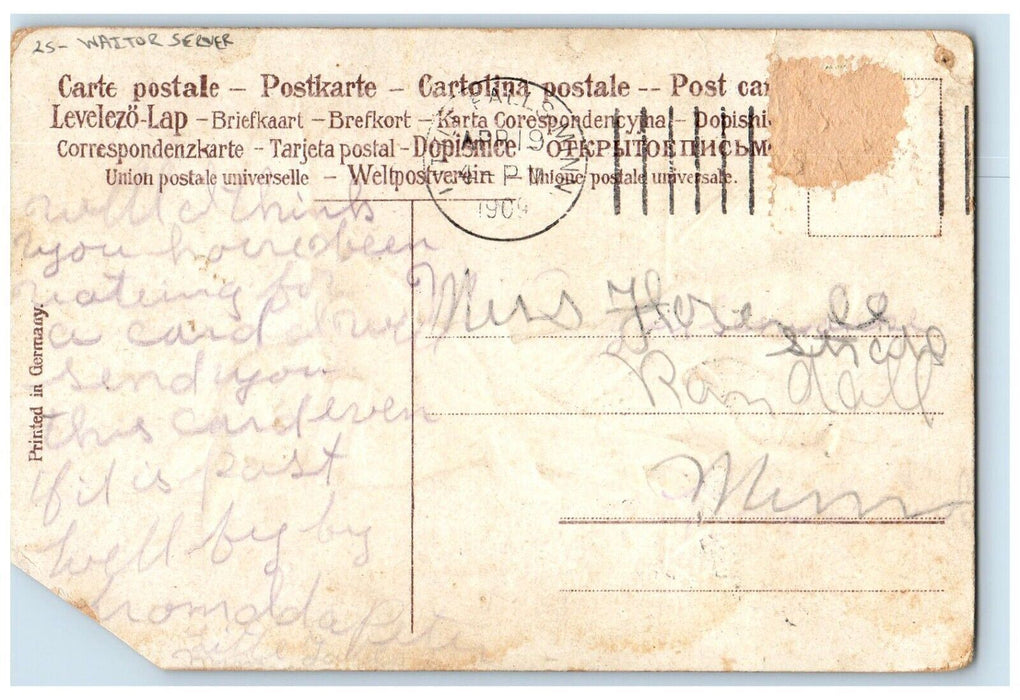 25- WAITOR SERVER
Carte postale – Postkarte – Cartolina postale -- Post
Levelező-Lap – Briefkaart – Brefkort – Karta Corespondencyjna – Dopisni
Correspondenzkarte – Tarjeta postal – Dopisnice ОТКРЫТОЕ ПИСЬМ
Union postale universelle – Weltpostverein – Unione postale universale.
FALLS MINN
APR 19
4 – P M
1909
well I think
you have been
wateing for
a card
send you
this card even
if it is past
well by by
from Ida Pete
Little
Printed in Germany.
Miss
Randall
Minn